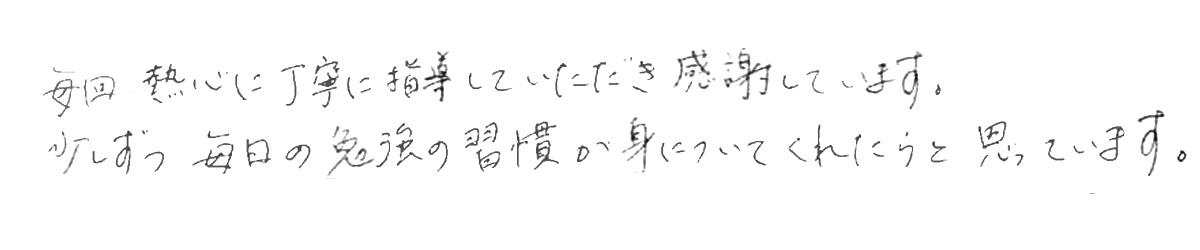 毎回 熱心に丁寧に指導していただき感謝しています。
少しずつ 毎日の勉強の習慣が身についてくれたらと思っています。